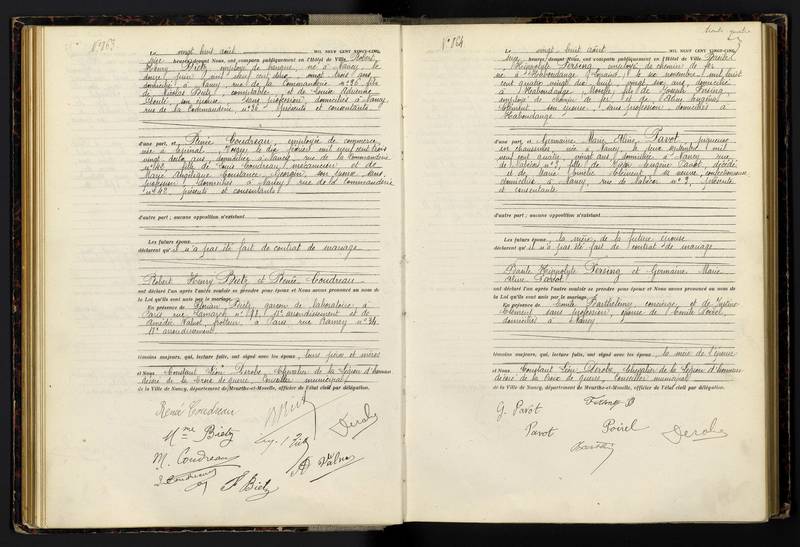 N° 163
Le vingt huit août MIL NEUF CENT VINGT-CINQ,
heures, devant Nous, ont comparu publiquement en l'Hôtel de Ville, Robert
Henry Bietz, employé de banque, né à Nancy, le
douze juin mil neuf cent deux, vingt trois ans,
domicilié à Nancy, rue de la Commanderie n° 36, fils
de Nicolas Bietz, comptable, et de Louise Adrienne
son épouse, sans profession, domiciliés à Nancy,
rue de la Commanderie, n° 36, présents et consentants
d'une part, et Renée Coudreau, employée de commerce,
née à Epinal, Vosges, le dix février mil neuf cent trois,
vingt deux ans, domiciliée à Nancy, rue de la Commanderie
n° 42, fille de Louis Coudreau, mécanicien et de
Marie Angélique Constance Georgin, son épouse sans
profession, domiciliés à Nancy, rue de la Commanderie
n° 42 présents et consentants
d'autre part ; aucune opposition n'existant
Les futurs époux
déclarent qu'il n'a pas été fait de contrat de mariage
Robert Henry Bietz et Renée Coudreau
ont déclaré l'un après l'autre vouloir se prendre pour époux et Nous avons prononcé au nom de
la Loi qu'ils sont unis par le mariage.
En présence de Bietz, garçon de laboratoire, à
Paris rue Lamarck, arrondissement et de
Amédée à Paris rue Ramey n° 34
arrondissement
témoins majeurs, qui, lecture faite, ont signé avec les époux, leurs pères et mères
et Nous, Constant Léon Derobe, Chevalier de la Légion d'honneur
décoré de la Croix de guerre, Conseiller municipal
de la Ville de Nancy, département de Meurthe-et-Moselle, officier de l'état civil par délégation.
Renée Coudreau
R Bietz
Derobe
Mme Bietz
M. Coudreau
L. Coudreau
N° 164
Le vingt huit août MIL NEUF CENT VINGT-CINQ,
heures, devant Nous, ont comparu publiquement en l'Hôtel de Ville,
Hippolyte Fersing, employé de chemins de fer,
né à Haboudange, le six novembre mil huit
cent quatre vingt dix huit, vingt six ans, domicilié
à Haboudange, Moselle, fils de Joseph Fersing,
employé de chemins de fer et de Aline Eugénie
Clément, son épouse, sans profession, domiciliés à
Haboudange
d'une part, et Germaine Marie Aline Pavot, piqueuse
en chaussures, née à Nancy, le deux septembre mil
neuf cent quatre, vingt ans, domiciliée à Nancy, rue
n° 3, fille de Eugène Pavot, décédé
et de Marie Clément, sa veuve, confectionneuse,
domiciliée à Nancy, rue n° 3, présente
et consentante
d'autre part ; aucune opposition n'existant
Les futurs époux, la mère de la future épouse
déclarent qu'il n'a pas été fait de contrat de mariage
Hippolyte Fersing et Germaine Marie
Aline Pavot
ont déclaré l'un après l'autre vouloir se prendre pour époux et Nous avons prononcé au nom de
la Loi qu'ils sont unis par le mariage.
En présence de Barthélemy, concierge, et de Justine
Clément sans profession, épouse de Emile Poirel,
domiciliés à Nancy
témoins majeurs, qui, lecture faite, ont signé avec les époux, la mère de l'épouse
et Nous, Constant Léon Derobe, Chevalier de la Légion d'honneur
décoré de la Croix de guerre, Conseiller municipal
de la Ville de Nancy, département de Meurthe-et-Moselle, officier de l'état civil par délégation.
G. Pavot
Fersing
Pavot
Poirel
Derobe